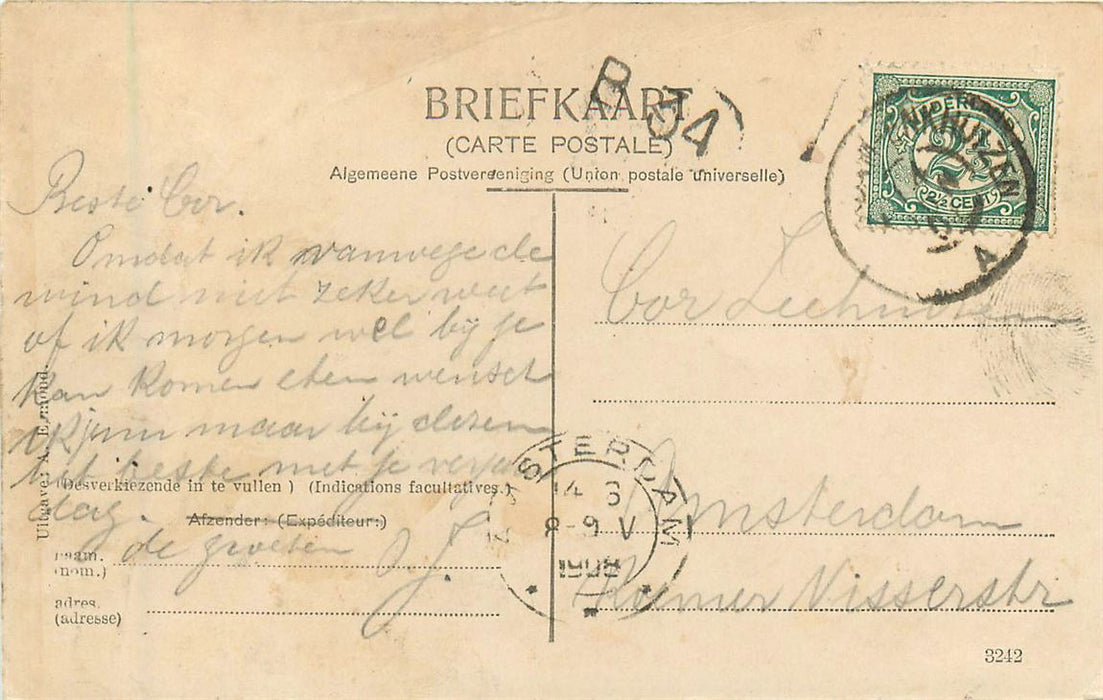 BRIEFKAART
(CARTE POSTALE)
Algemeene Postvereeniging (Union postale universelle)
R 34
NEDERLAND
2½
2½ CENT
NKHUIZEN
A
Beste Cor.
Omdat ik vanwege de
wind niet zeker weet
of ik morgen wel bij je
kan komen eten wensch
ik jou maar bij dezen
het beste met je verjaar
dag.
de groeten
Cor
Amsterdam
Roemer Visscherstr
AMSTERDAM
14 6
8-9 V
1908
(Desverkiezende in te vullen) (Indications facultatives.)
Afzender: (Expéditeur:)
naam.
(nom.)
adres.
(adresse)
Uitgave: A. Egmond.
3242